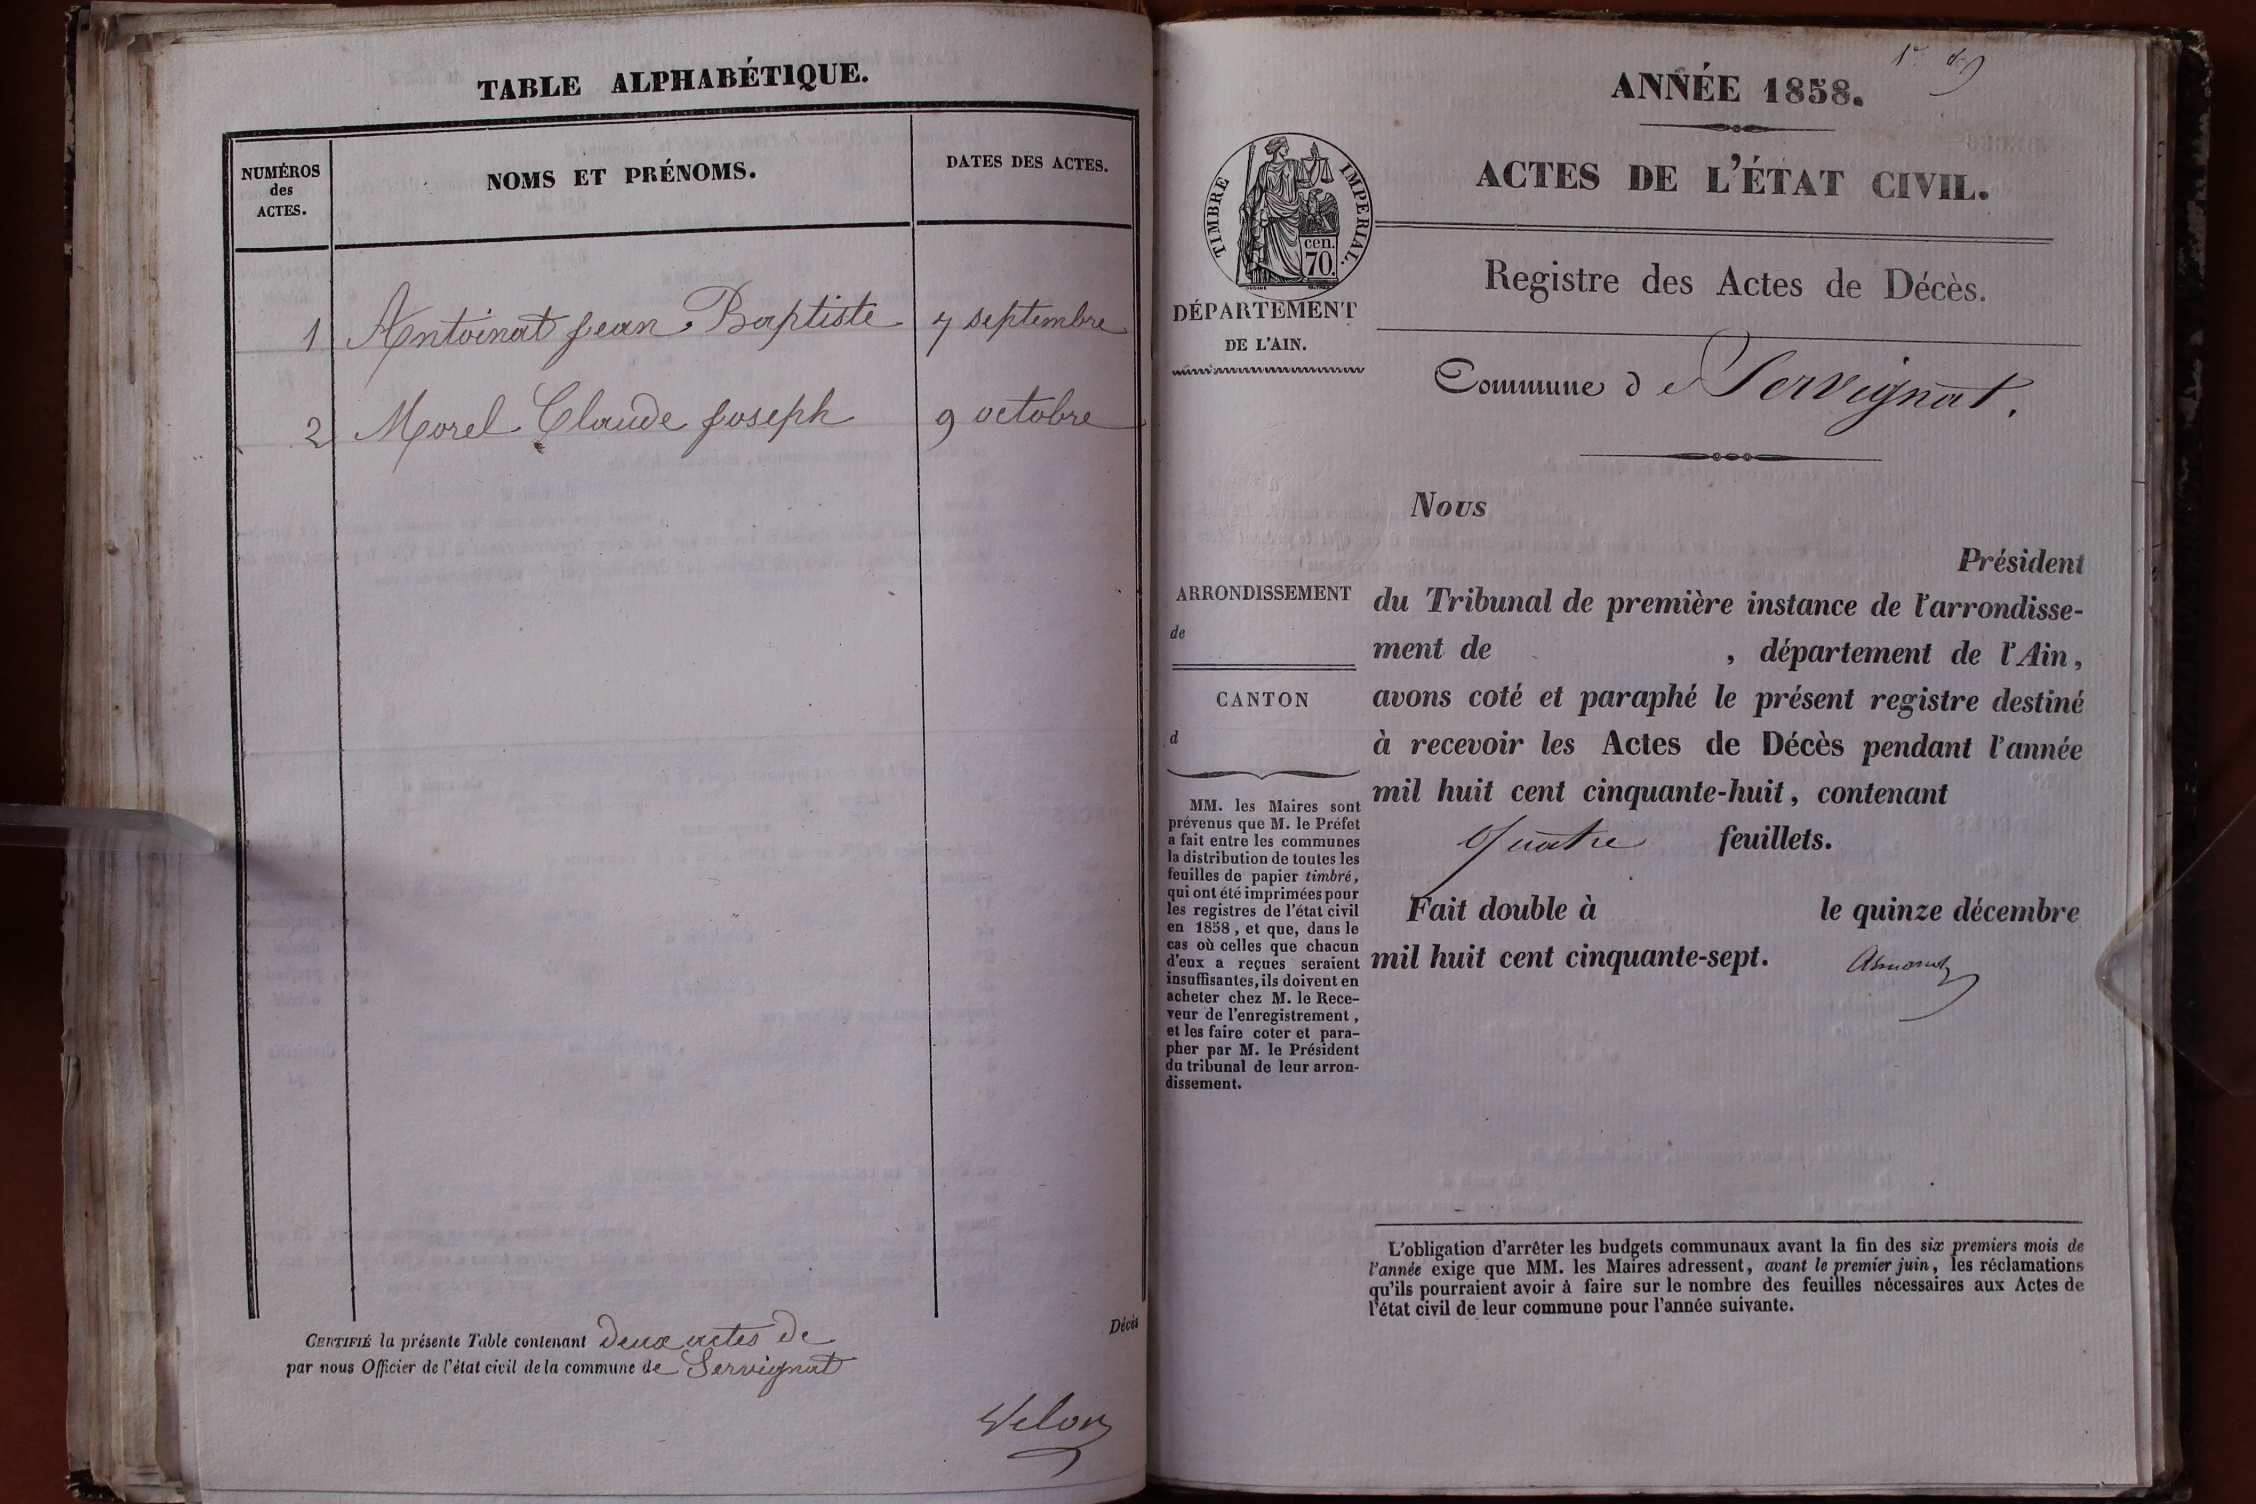 TABLE ALPHABÉTIQUE.
NUMÉROS
des
ACTES.
NOMS ET PRÉNOMS.
DATES DES ACTES.
1 Antoinat Jean Baptiste 7 septembre
2 Morel Claude Joseph 9 octobre
CERTIFIÉ la présente Table contenant deux actes de Décès
par nous Officier de l'état civil de la commune de Servignat
Velon
ANNÉE 1858.
ACTES DE L'ÉTAT CIVIL.
TIMBRE IMPERIAL.
cen.
70.
Registre des Actes de Décès.
DÉPARTEMENT
DE L'AIN.
Commune de Servignat.
Nous
Président
ARRONDISSEMENT
de
du Tribunal de première instance de l'arrondisse-
ment de , département de l'Ain,
CANTON
d
avons coté et paraphé le présent registre destiné
à recevoir les Actes de Décès pendant l'année
mil huit cent cinquante-huit, contenant
Quatre feuillets.
Fait double à le quinze décembre
mil huit cent cinquante-sept.
MM. les Maires sont
prévenus que M. le Préfet
a fait entre les communes
la distribution de toutes les
feuilles de papier timbré,
qui ont été imprimées pour
les registres de l'état civil
en 1858, et que, dans le
cas où celles que chacun
d'eux a reçues seraient
insuffisantes, ils doivent en
acheter chez M. le Rece-
veur de l'enregistrement,
et les faire coter et para-
pher par M. le Président
du tribunal de leur arron-
dissement.
L'obligation d'arrêter les budgets communaux avant la fin des six premiers mois de
l'année exige que MM. les Maires adressent, avant le premier juin, les réclamations
qu'ils pourraient avoir à faire sur le nombre des feuilles nécessaires aux Actes de
l'état civil de leur commune pour l'année suivante.